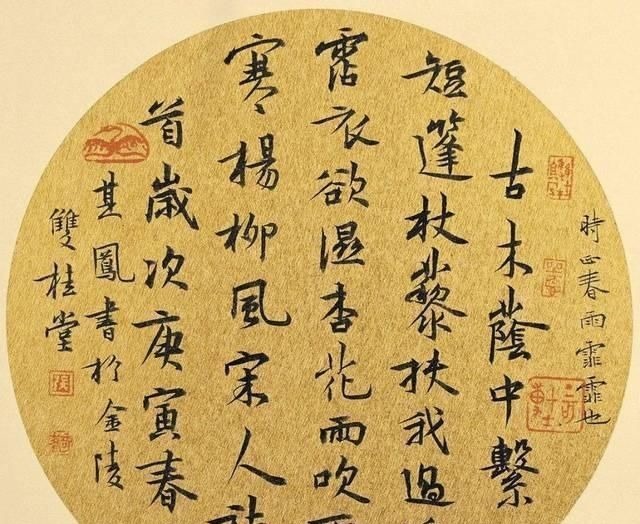 時正春雨霏霏也
古木蔭中繫
短篷杖藜扶我過
霑衣欲濕杏花雨吹
寒楊柳風宋人
首歲次庚寅春
其鳳書於金陵
雙桂堂